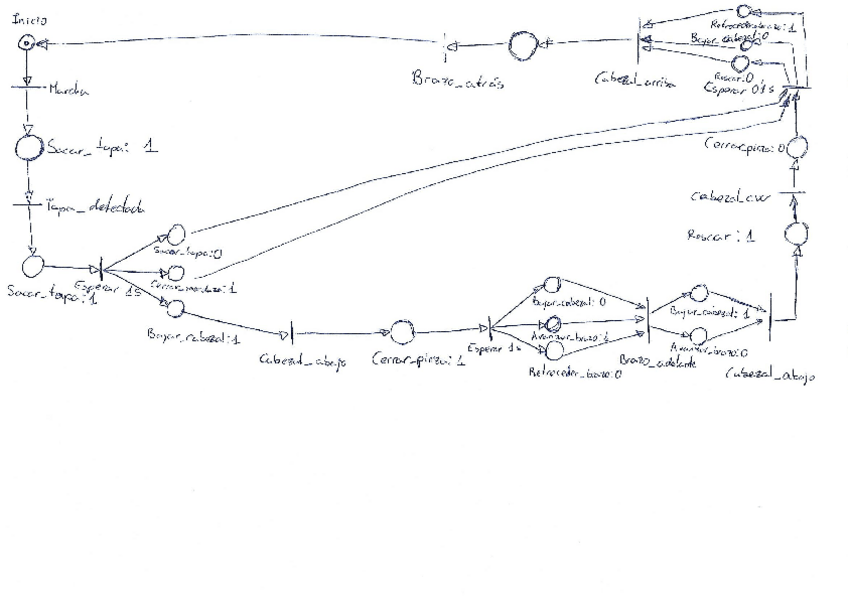 Inicio
Marcha
Sacar_tapa: 1
Tapa_detectada
Sacar_tapa:1
Esperar 1s
Sacar_tapa:0
Bajar_cabezal:1
Cabezal_abajo
Cerrar_pinza: 1
Esperar 1s
Bajar_cabezal: 0
Avanzar_brazo:1
Retroceder_brazo:0
Brazo_adelante
Bajar_cabezal: 1
Avanzar_brazo:0
Cabezal_abajo
Roscar: 1
Cabezal_cw
Cerrar_pinza: 0
Esperar 0'1s
Retroceder_brazo: 1
Bajar_cabezal:0
Roscar:0
Cabezal_arriba
Brazo_atrás